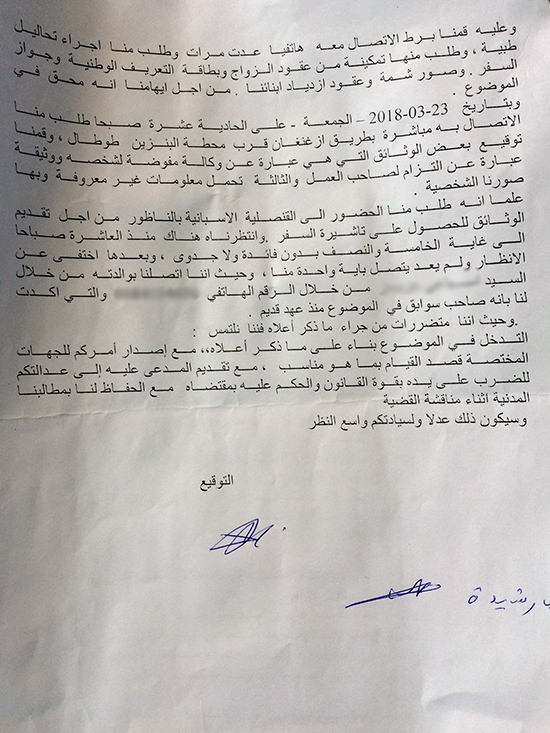 وعليه قمنا بربط الاتصال معه هاتفيا عدت مرات وطلب منا اجراء تحاليل
طبية ، وطلب منها تمكينة من عقود الزواج وبطاقة التعريف الوطنية وجواز
السفر . وصور شمة وعقود ازدياد ابنائنا . من اجل ايهامنا انه محق في
الموضوع .
وبتاريخ 23-03-2018 – الجمعة - على الحادية عشرة صبحا طلب منا
الاتصال به مباشرة بطريق ازغنغان قرب محطة البنزين طوطال ، وقمنا
توقيع بعض الوثائق التي هي عبارة عن وكالة مفوضة لشخصه ووثيقة
عبارة عن التزام لصاحب العمل والثالثة تحمل معلومات غير معروفة وبها
صورنا الشخصية .
علما انه طلب منا الحضور الى القنصلية الاسبانية بالناظور من اجل تقديم
الوثائق للحصول على تاشيرة السفر .وانتظرناه هناك منذ العاشرة صباحا
الى غاية الخامسة والنصف بدون فائدة ولا جدوى ، وبعدها اختفى عن
الانظار ولم يعد يتصل باية واحدة منا ، وحيث اننا اتصلنا بوالدته من خلال
السيد من خلال الرقم الهاتفي والتي اكدت
لنا بانه صاحب سوابق في الموضوع منذ عهد قديم .
.وحيث اننا متضررات من جراء ما ذكر أعلاه فننا نلتمس :
التدخل في الموضوع بناء على ما ذكر أعلاه،، مع إصدار أمركم للجهات
المختصة قصد القيام بما هو مناسب ، مع تقديم المدعى عليه إلى عدالتكم
للضرب على يده بقوة القانون والحكم عليه بمقتضاه مع الحفاظ لنا بمطالبنا
المدنية اثناء مناقشة القضية
وسيكون ذلك عدلا ولسيادتكم واسع النظر
التوقيع
رشيدة